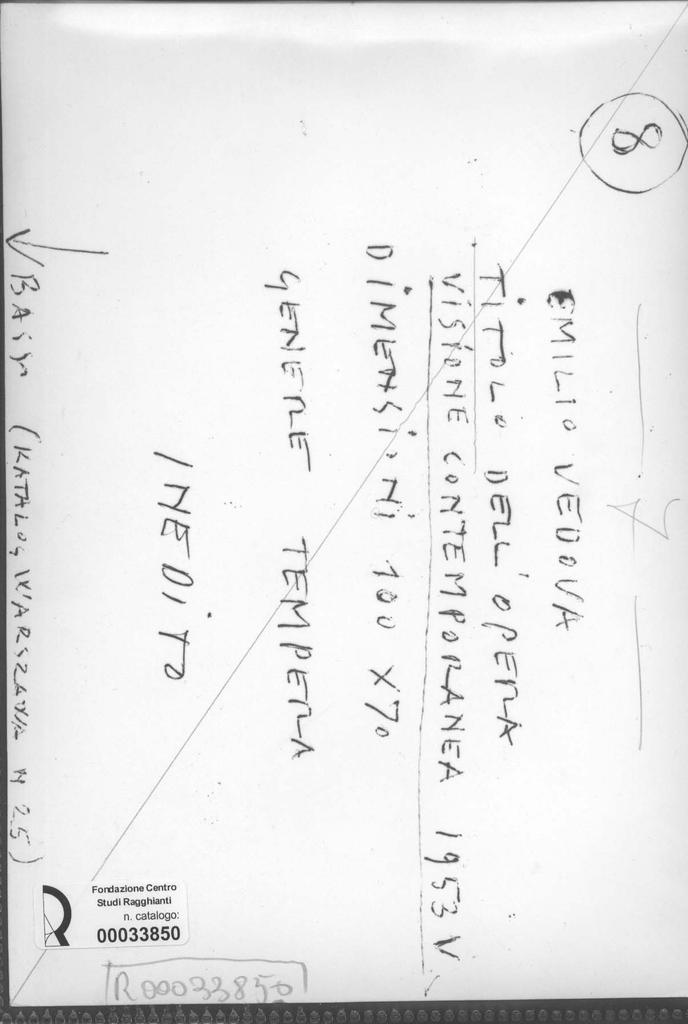 8
EMILIO VEDOVA
TITOLO DELL'OPERA
VISIONE CONTEMPORANEA 1953 V
DIMENSIONI 100 X 70
GENERE TEMPERA
INEDITO
(KATALOG WARSZAWA N 25)
Fondazione Centro
Studi Ragghianti
n. catalogo:
00033850
R00033850